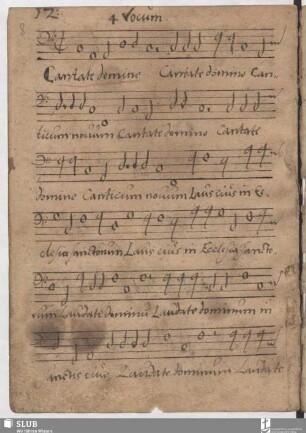 12.
4 Vocum
Cantate domino Cantate domino Can-
ticum novum Cantate domino Cantate
domino Canticum novum Laus eius in Ec-
clesia sanctorum Laus eius in Ecclesia sancto-
rum Laudate dominum Laudate dominum in
sanctis eius Laudate dominum Laudate
SLUB
Wir führen Wissen.